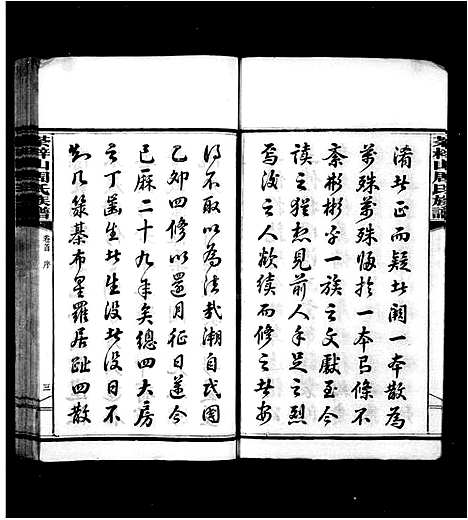 淆者正而疑者闕一本散為
萬殊萬殊歸於一本有條不
紊彬彬乎一族之文獻至今
讀之猶想見前人手之烈
焉後之人欲續而修之者安
得不取以為法哉溯自民國
乙卯四修以還月征日邁今
已歷二十九年矣總四大房
之丁蕃生者生沒者沒日不
知凡幾綦布星羅居趾四散
茶梓山周氏族譜
卷首 序
三